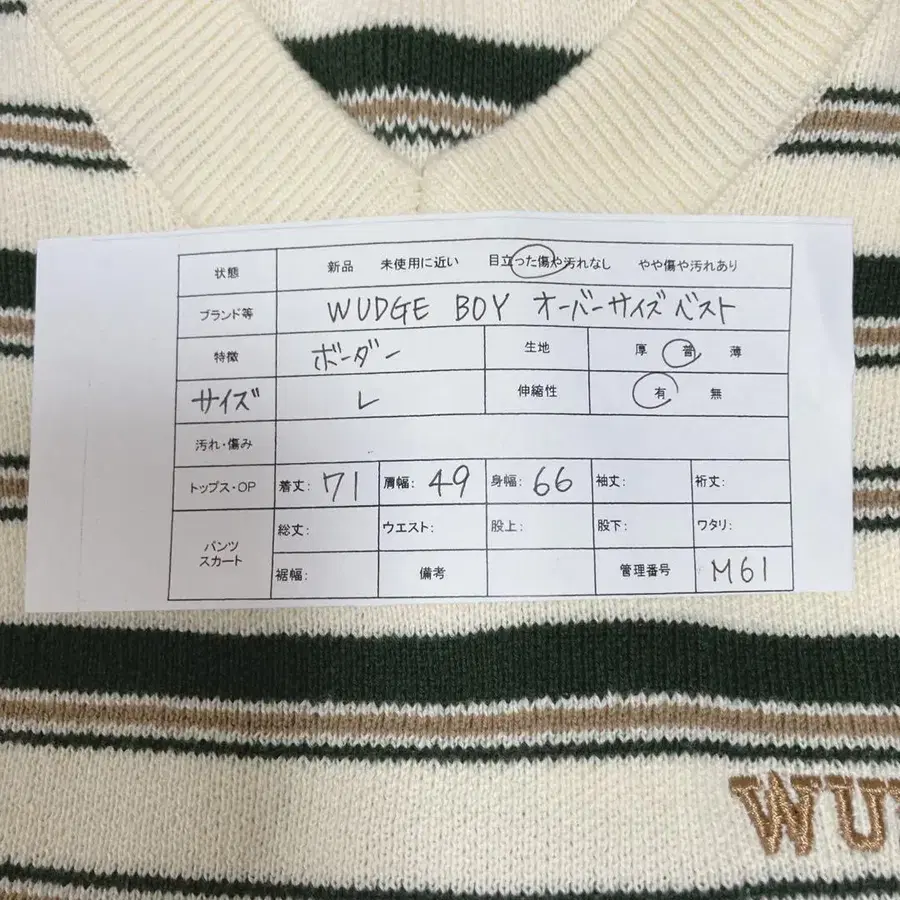 状態 新品 未使用に近い 目立った傷や汚れなし やや傷や汚れあり
ブランド等 WUDGE BOY オーバーサイズ ベスト
特徴 ボーダー 生地 厚 普 薄
サイズ L 伸縮性 有 無
汚れ・傷み
トップス・OP 着丈: 71 肩幅: 49 身幅: 66 袖丈: 裄丈:
パンツ スカート 総丈: ウエスト: 股上: 股下: ワタリ:
裾幅: 備考 管理番号 M61
WU